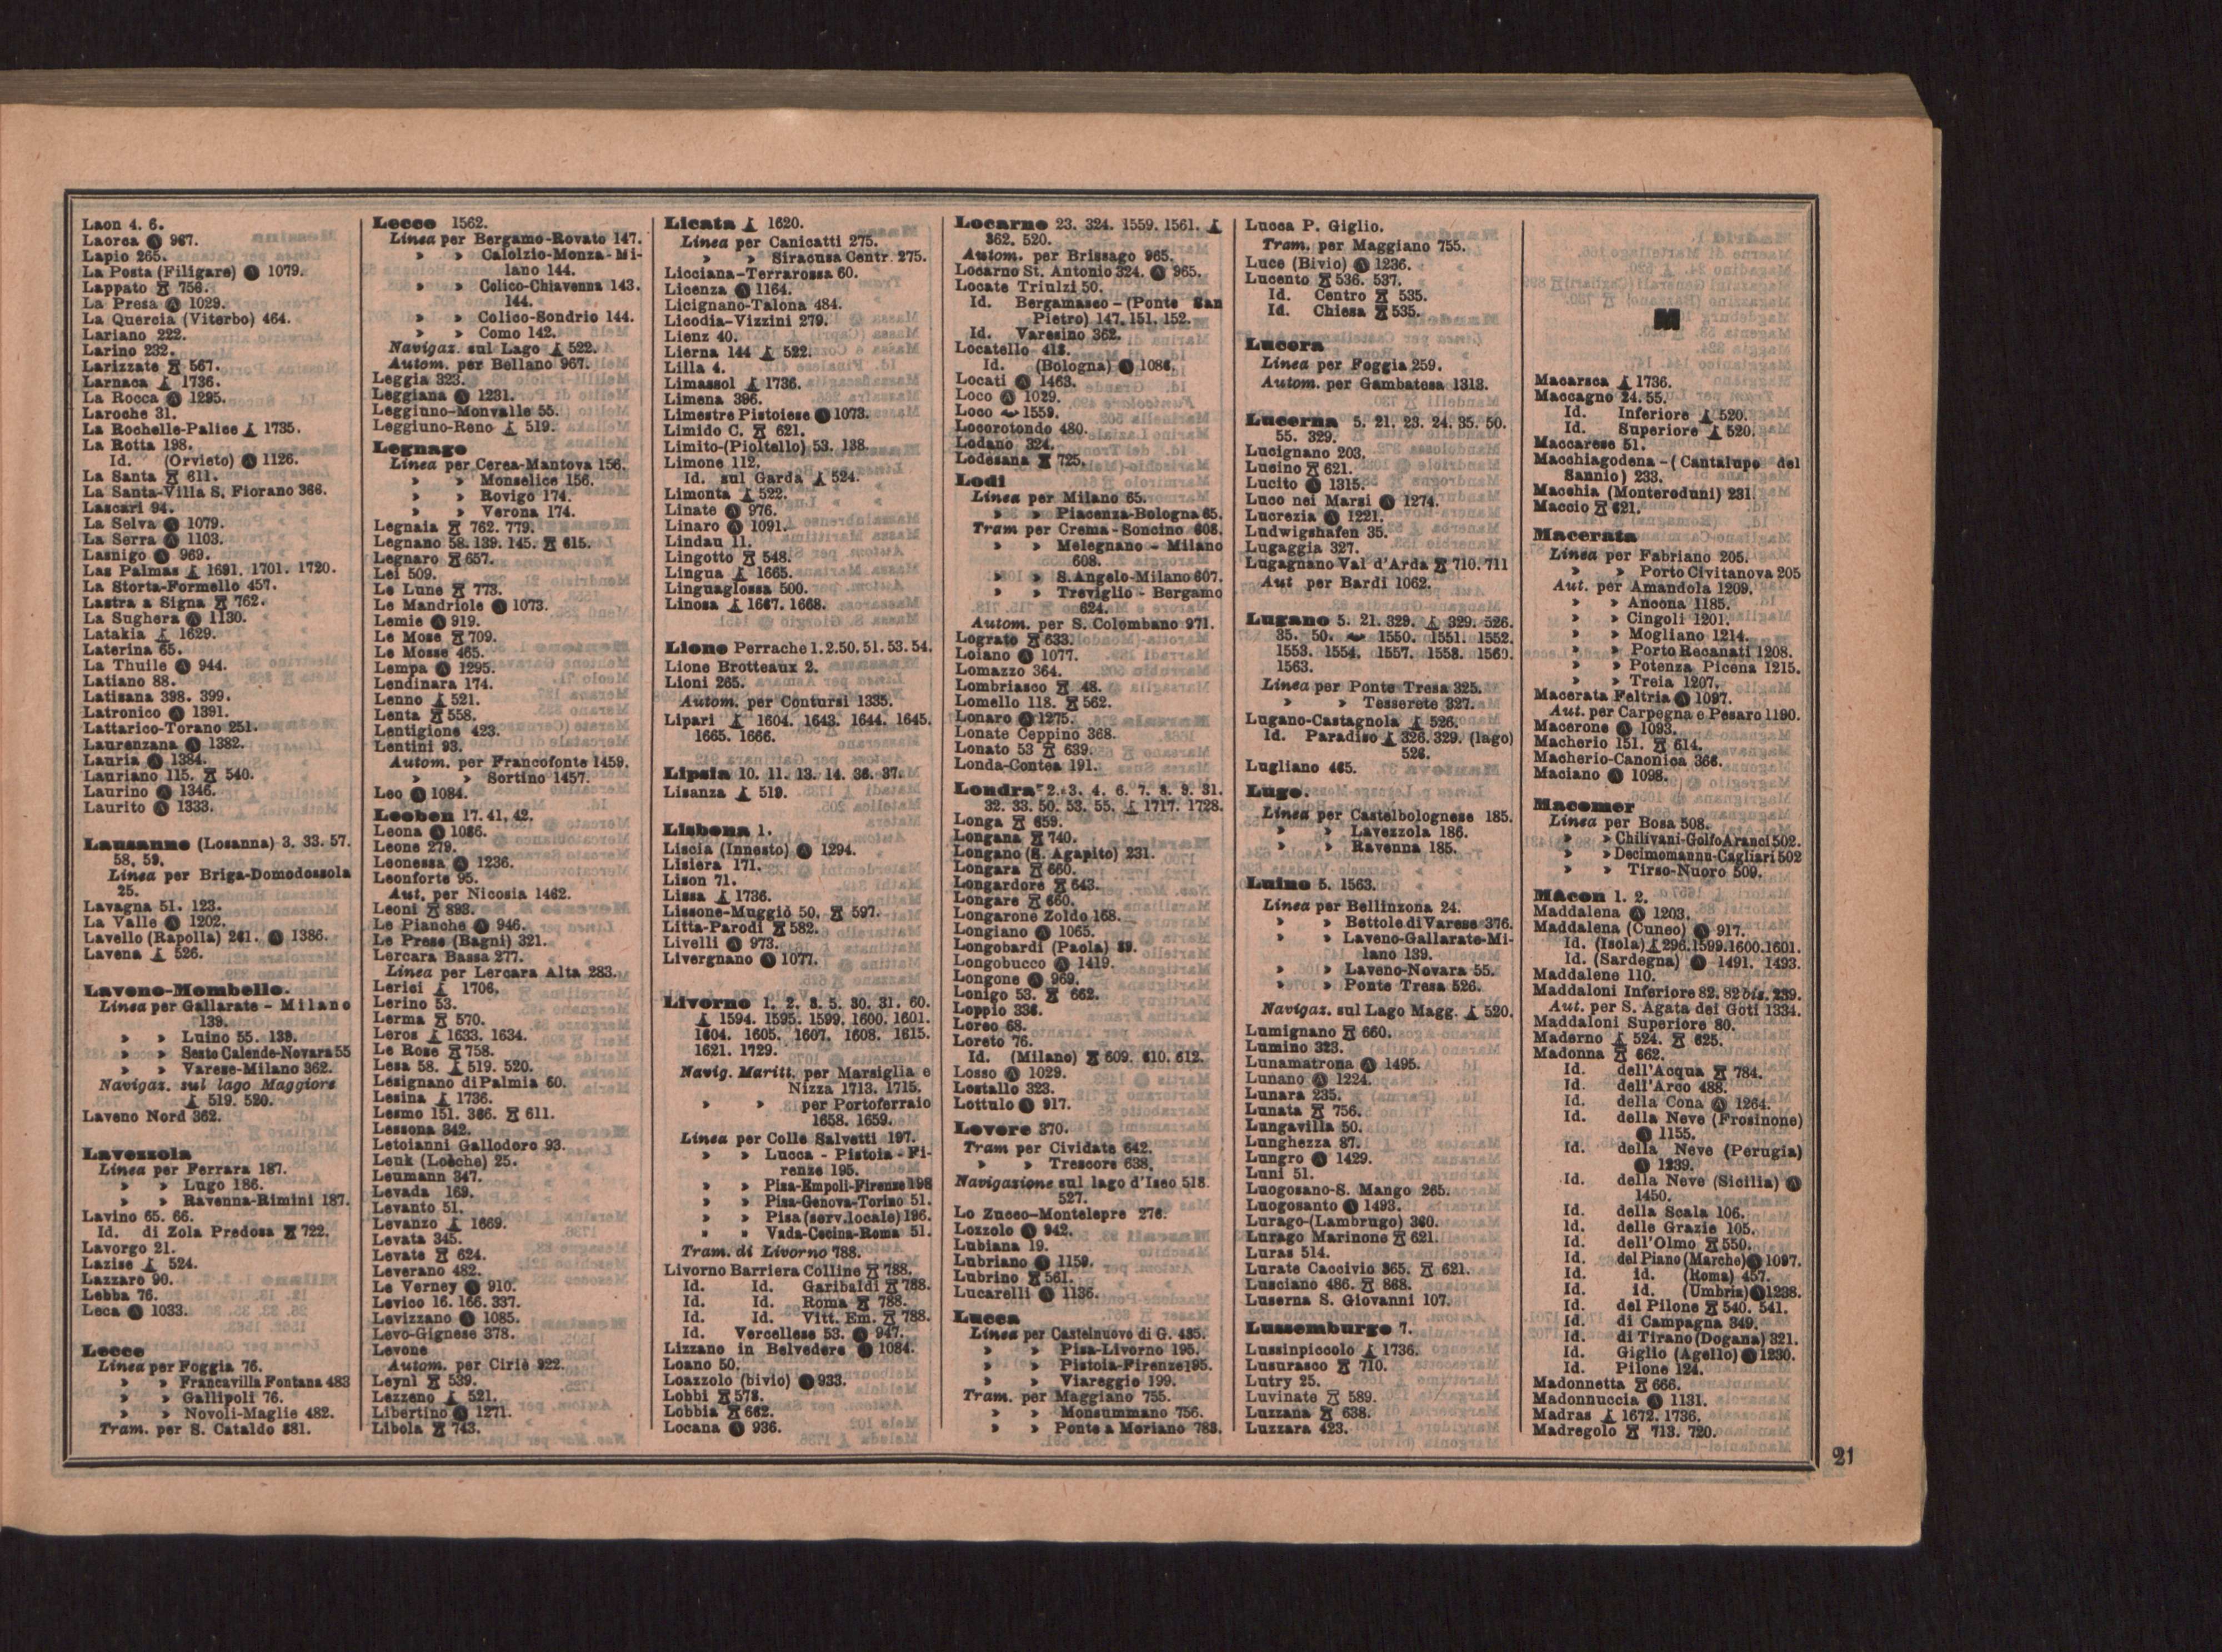 Laon 4. 6.
Laorca Ⓐ 967.
Lapio 265.
La Posta (Filigare) Ⓐ 1079.
Lappato 756.
La Presa Ⓐ 1029.
La Quercia (Viterbo) 464.
Lariano 222.
Larino 232.
Larizzate 567.
Larnaca 1736.
La Rocca Ⓐ 1295.
Laroche 31.
La Rochelle-Palice 1735.
La Rotta 198.
Id. (Orvieto) Ⓐ 1126.
La Santa 611.
La Santa-Villa S. Fiorano 366.
Lascari 94.
La Selva Ⓐ 1079.
La Serra Ⓐ 1103.
Lasnigo Ⓐ 969.
Las Palmas 1691. 1701. 1720.
La Storta-Formello 457.
Lastra a Signa 762.
La Sughera Ⓐ 1130.
Latakia 1629.
Laterina 65.
La Thuile Ⓐ 944.
Latiano 88.
Latisana 398. 399.
Latronico Ⓐ 1391.
Lattarico-Torano 251.
Laurenzana Ⓐ 1382.
Lauria Ⓐ 1384.
Lauriano 115. 540.
Laurino Ⓐ 1346.
Laurito Ⓐ 1333.
Lausanne (Losanna) 3. 33. 57.
58. 59.
Linea per Briga-Domodossola
25.
Lavagna 51. 123.
La Valle Ⓐ 1202.
Lavello (Rapolla) 261. Ⓐ 1386.
Lavena 526.
Laveno-Mombello.
Linea per Gallarate - Milano
139.
» » Luino 55. 139.
» » Sesto Calende-Novara 55
» » Varese-Milano 362.
Navigaz. sul lago Maggiore
519. 520.
Laveno Nord 362.
Lavezzola
Linea per Ferrara 187.
» » Lugo 186.
» » Ravenna-Rimini 187.
Lavino 65. 66.
Id. di Zola Predosa 722.
Lavorgo 21.
Lazise 524.
Lazzaro 90.
Lebba 76.
Leca Ⓐ 1033.
Lecce
Linea per Foggia 76.
» » Francavilla Fontana 483
» » Gallipoli 76.
» » Novoli-Maglie 482.
Tram. per S. Cataldo 881.
Lecco 1562.
Linea per Bergamo-Rovato 147.
» » Calolzio-Monza-Mi-
lano 144.
» » Colico-Chiavenna 143.
144.
» » Colico-Sondrio 144.
» » Como 142.
Navigaz. sul Lago 522.
Autom. per Bellano 967.
Leggia 323.
Leggiana Ⓐ 1231.
Leggiuno-Monvalle 55.
Leggiuno-Reno 519.
Legnago
Linea per Cerea-Mantova 156.
» » Monselice 156.
» » Rovigo 174.
» » Verona 174.
Legnaia 762. 779.
Legnano 58. 139. 145. 615.
Legnaro 657.
Lei 509.
Le Lune 773.
Le Mandriole Ⓐ 1073.
Lemie Ⓐ 919.
Le Mose 709.
Le Mosse 465.
Lempa Ⓐ 1295.
Lendinara 174.
Lenno 521.
Lenta 558.
Lentigione 423.
Lentini 93.
Autom. per Francofonte 1459.
» » Sortino 1457.
Leo Ⓐ 1084.
Leoben 17. 41. 42.
Leona Ⓐ 1086.
Leone 279.
Leonessa Ⓐ 1236.
Leonforte 95.
Aut. per Nicosia 1462.
Leoni 893.
Le Pianche Ⓐ 946.
Le Prese (Bagni) 321.
Lercara Bassa 277.
Linea per Lercara Alta 283.
Lerici 1706.
Lerino 53.
Lerma 570.
Leros 1633. 1634.
Le Rose 758.
Lesa 58. 519. 520.
Lesignano di Palmia 60.
Lesina 1736.
Lesmo 151. 366. 611.
Lessona 342.
Letoianni Gallodoro 93.
Leuk (Loèche) 25.
Leumann 347.
Levada 169.
Levanto 51.
Levanzo 1669.
Levata 345.
Levate 624.
Leverano 482.
Le Verney Ⓐ 910.
Levico 16. 166. 337.
Levizzano Ⓐ 1085.
Levo-Gignese 378.
Levone
Autom. per Ciriè 922.
Leynì 539.
Lezzeno 521.
Libertino Ⓐ 1271.
Libola 743.
Licata 1620.
Linea per Canicatti 275.
» » Siracusa Centr. 275.
Licciana-Terrarossa 60.
Licenza Ⓐ 1164.
Licignano-Talona 484.
Licodia-Vizzini 279.
Lienz 40.
Lierna 144 522.
Lilla 4.
Limassol 1736.
Limena 396.
Limestre Pistoiese Ⓐ 1073.
Limido C. 621.
Limito-(Pioltello) 53. 138.
Limone 112.
Id. sul Garda 524.
Limonta 522.
Linate Ⓐ 976.
Linaro Ⓐ 1091.
Lindau 11.
Lingotto 548.
Lingua 1665.
Linguaglossa 500.
Linosa 1667. 1668.
Lione Perrache 1. 2. 50. 51. 53. 54.
Lione Brotteaux 2.
Lioni 265.
Autom. per Contursi 1335.
Lipari 1604. 1643. 1644. 1645.
1665. 1666.
Lipsia 10. 11. 13. 14. 36. 37.
Lisanza 519.
Lisbona 1.
Liscia (Innesto) Ⓐ 1294.
Lisiera 171.
Lison 71.
Lissa 1736.
Lissone-Muggiò 50. 597.
Litta-Parodi 582.
Livelli Ⓐ 973.
Livergnano Ⓐ 1077.
Livorno 1. 2. 3. 5. 30. 31. 60.
1594. 1595. 1599. 1600. 1601.
1604. 1605. 1607. 1608. 1615.
1621. 1729.
Navig. Maritt. per Marsiglia e
Nizza 1713. 1715.
» » per Portoferraio
1658. 1659.
Linea per Colle Salvetti 197.
» » Lucca - Pistoia - Fi-
renze 195.
» » Pisa-Empoli-Firenze 198
» » Pisa-Genova-Torino 51.
» » Pisa (serv. locale) 196.
» » Vada-Cecina-Roma 51.
Tram. di Livorno 788.
Livorno Barriera Colline 788.
Id. Id. Garibaldi 788.
Id. Id. Roma 788.
Id. Id. Vitt. Em. 788.
Id. Vercellese 53. Ⓐ 947.
Lizzano in Belvedere Ⓐ 1084.
Loano 50.
Loazzolo (bivio) Ⓐ 933.
Lobbi 578.
Lobbia 662.
Locana Ⓐ 936.
Locarno 23. 324. 1559. 1561.
362. 520.
Autom. per Brissago 965.
Locarno St. Antonio 324. Ⓐ 965.
Locate Triulzi 50.
Id. Bergamasco - (Ponte San
Pietro) 147. 151. 152.
Id. Varesino 362.
Locatello 413.
Id. (Bologna) Ⓐ 1086.
Locati Ⓐ 1463.
Loco Ⓐ 1029.
Loco 1559.
Locorotondo 480.
Lodano 324.
Lodesana 725.
Lodi
Linea per Milano 65.
» » Piacenza-Bologna 65.
Tram per Crema-Soncino 608.
» » Melegnano - Milano
608.
» » S. Angelo-Milano 607.
» » Treviglio - Bergamo
624.
Autom. per S. Colombano 971.
Lograto 633.
Loiano Ⓐ 1077.
Lomazzo 364.
Lombriasco 48.
Lomello 118. 562.
Lonaro Ⓐ 1275.
Lonate Ceppino 368.
Lonato 53 639.
Londa-Contea 191.
Londra 2. 3. 4. 6. 7. 8. 9. 31.
32. 33. 50. 53. 55. 1717. 1728.
Longa 659.
Longana 740.
Longano (S. Agapito) 231.
Longara 660.
Longardore 643.
Longare 660.
Longarone Zoldo 168.
Longiano Ⓐ 1065.
Longobardi (Paola) 89.
Longobucco Ⓐ 1419.
Longone Ⓐ 969.
Lonigo 53. 662.
Loppio 336.
Loreo 68.
Loreto 76.
Id. (Milano) 609. 610. 612.
Losso Ⓐ 1029.
Lostallo 323.
Lottulo Ⓐ 917.
Lovere 370.
Tram per Cividate 642.
» » Trescore 638.
Navigazione sul lago d'Iseo 518.
527.
Lo Zucco-Montelepre 276.
Lozzolo Ⓐ 942.
Lubiana 19.
Lubriano Ⓐ 1159.
Lubrino 561.
Lucarelli Ⓐ 1136.
Lucca
Linea per Castelnuovo di G. 435.
» » Pisa-Livorno 195.
» » Pistoia-Firenze 195.
» » Viareggio 199.
Tram. per Maggiano 755.
» » Monsummano 756.
» » Ponte a Moriano 783.
Lucca P. Giglio.
Tram. per Maggiano 755.
Luce (Bivio) Ⓐ 1236.
Lucento 536. 537.
Id. Centro 535.
Id. Chiesa 535.
Lucera
Linea per Foggia 259.
Autom. per Gambatesa 1313.
Lucerna 5. 21. 23. 24. 35. 50.
55. 329.
Lucignano 203.
Lucino 621.
Lucito Ⓐ 1315.
Luco nei Marsi Ⓐ 1274.
Lucrezia Ⓐ 1221.
Ludwigshafen 35.
Lugaggia 327.
Lugagnano Val d'Arda 710. 711
Aut per Bardi 1062.
Lugano 5. 21. 329. 329. 526.
35. 50. 1550. 1551. 1552.
1553. 1554. 1557. 1558. 1560.
1563.
Linea per Ponte Tresa 325.
» » Tesserete 327.
Lugano-Castagnola 526.
Id. Paradiso 326. 329. (lago)
526.
Lugliano 465.
Lugo.
Linea per Castelbolognese 185.
» » Lavezzola 186.
» » Ravenna 185.
Luino 5. 1563.
Linea per Bellinzona 24.
» » Bettole di Varese 376.
» » Laveno-Gallarate-Mi-
lano 139.
» » Laveno-Novara 55.
» » Ponte Tresa 526.
Navigaz. sul Lago Magg. 520.
Lumignano 660.
Lumino 323.
Lunamatrona Ⓐ 1495.
Lunano Ⓐ 1224.
Lunara 235.
Lunata 756.
Lungavilla 50.
Lunghezza 87.
Lungro Ⓐ 1429.
Luni 51.
Luogosano-S. Mango 265.
Luogosanto Ⓐ 1493.
Lurago-(Lambrugo) 360.
Lurago Marinone 621.
Luras 514.
Lurate Caccivio 365. 621.
Lusciano 486. 868.
Luserna S. Giovanni 107.
Lussemburgo 7.
Lussinpiccolo 1736.
Lusurasco 710.
Lutry 25.
Luvinate 589.
Luzzana 638.
Luzzara 423.
M
Macarsca 1736.
Maccagno 24. 55.
Id. Inferiore 520.
Id. Superiore 520.
Maccarese 51.
Macchiagodena - (Cantalupo del
Sannio) 233.
Macchia (Monteroduni) 231.
Maccio 621.
Macerata
Linea per Fabriano 205.
» » Porto Civitanova 205
Aut. per Amandola 1209.
» » Ancona 1185.
» » Cingoli 1201.
» » Mogliano 1214.
» » Porto Recanati 1208.
» » Potenza Picena 1215.
» » Treia 1207.
Macerata Feltria Ⓐ 1097.
Aut. per Carpegna e Pesaro 1190.
Macerone Ⓐ 1093.
Macherio 151. 614.
Macherio-Canonica 366.
Maciano Ⓐ 1098.
Macomer
Linea per Bosa 508.
» » Chilivani-Golfo Aranci 502.
» » Decimomannu-Cagliari 502
» » Tirso-Nuoro 509.
Mâcon 1. 2.
Maddalena Ⓐ 1203.
Maddalena (Cuneo) Ⓐ 917.
Id. (Isola) 296. 1599. 1600. 1601.
Id. (Sardegna) Ⓐ 1491. 1493.
Maddalene 110.
Maddaloni Inferiore 82. 82 bis. 239.
Aut. per S. Agata dei Goti 1334.
Maddaloni Superiore 80.
Maderno 524. 625.
Madonna 662.
Id. dell'Acqua 784.
Id. dell'Arco 488.
Id. della Cona Ⓐ 1264.
Id. della Neve (Frosinone)
Ⓐ 1155.
Id. della Neve (Perugia)
Ⓐ 1239.
Id. della Neve (Sicilia) Ⓐ
1450.
Id. della Scala 106.
Id. delle Grazie 105.
Id. dell'Olmo 550.
Id. del Piano (Marche) Ⓐ 1097.
Id. id. (Roma) 457.
Id. id. (Umbria) Ⓐ 1238.
Id. del Pilone 540. 541.
Id. di Campagna 349.
Id. di Tirano (Dogana) 321.
Id. Giglio (Agello) Ⓐ 1230.
Id. Pilone 124.
Madonnetta 666.
Madonnuccia Ⓐ 1131.
Madras 1672. 1736.
Madregolo 713. 720.
21